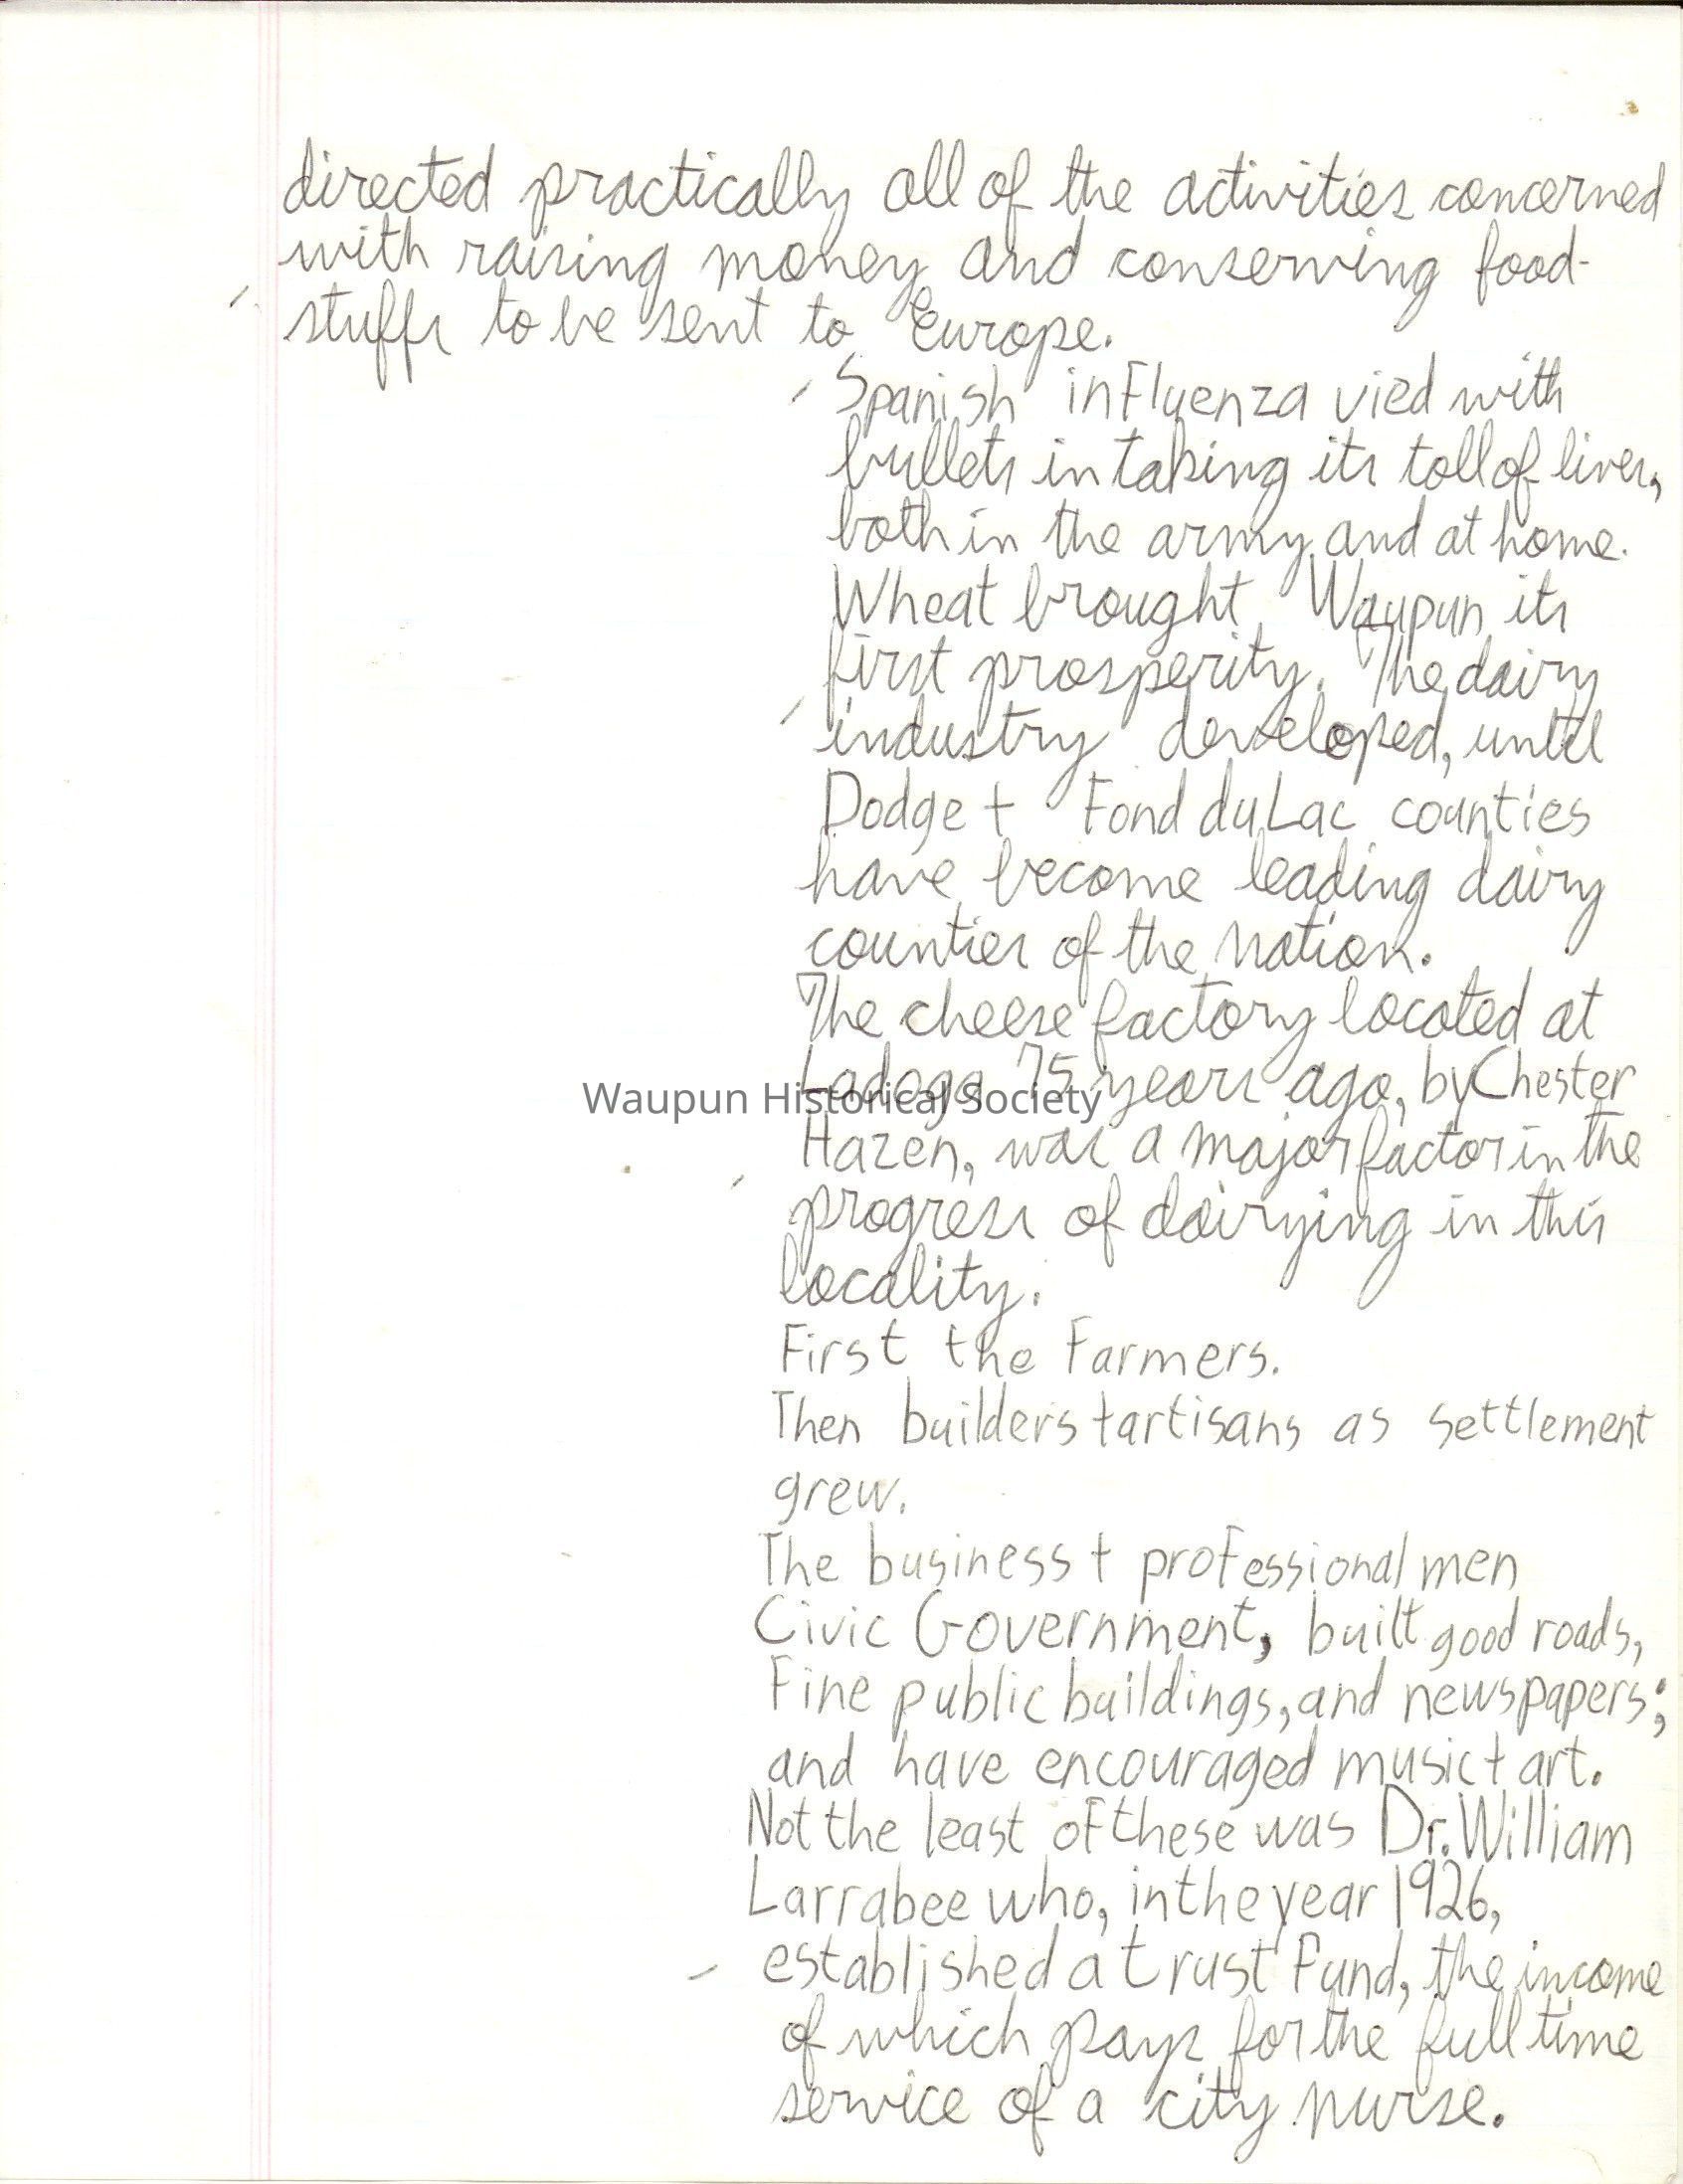 directed practically all of the activities concerned
with raising money and conserving food-
stuffs to be sent to Europe.
Spanish influenza vied with
bullets in taking its toll of lives,
both in the army and at home.
Wheat brought Waupun its
first prosperity. The dairy
industry developed, until
Dodge + Fond du Lac counties
have become leading dairy
counties of the nation.
The cheese factory located at
Ladoga 75 years ago, by Chester
Waupun Historical Society
Hazen, was a major factor in the
progress of dairying in this
locality.
First the Farmers.
Then builders + artisans as settlement
grew.
The business + professional men
Civic Government, built good roads,
Fine public buildings, and newspapers;
and have encouraged music + art.
Not the least of these was Dr. William
Larrabee who, in the year 1926,
established a trust Fund, the income
of which pays for the full time
service of a city nurse.